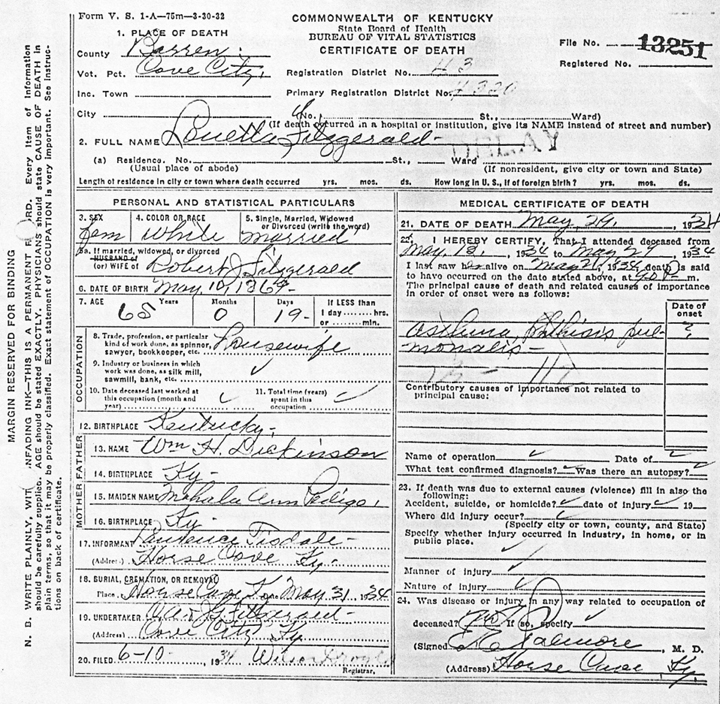 Form V. S. 1-A—75m—3-30-32
COMMONWEALTH OF KENTUCKY
State Board of Health
BUREAU OF VITAL STATISTICS
CERTIFICATE OF DEATH
File No. 13251
Registered No.
1. PLACE OF DEATH
County Barren
Vot. Pct. Cave City
Inc. Town
Registration District No. 43
Primary Registration District No.
City (No. St., Ward)
(If death occurred in a hospital or institution, give its NAME instead of street and number)
2. FULL NAME Louella Fitzgerald
DELAY
(a) Residence. No. St., Ward
(Usual place of abode) (If nonresident, give city or town and State)
Length of residence in city or town where death occurred yrs. mos. ds. How long in U. S., if of foreign birth? yrs. mos. ds.
PERSONAL AND STATISTICAL PARTICULARS
3. SEX Fem
4. COLOR OR RACE White
5. Single, Married, Widowed or Divorced (write the word) married
5a. If married, widowed, or divorced
HUSBAND of
(or) WIFE of Robert J Fitzgerald
6. DATE OF BIRTH May 10, 1869
7. AGE 65 Years 0 Months 19 Days If LESS than
1 day hrs.
or min.
OCCUPATION
8. Trade, profession, or particular
kind of work done, as spinner,
sawyer, bookkeeper, etc. Housewife
9. Industry or business in which
work was done, as silk mill,
sawmill, bank, etc. ✓
10. Date deceased last worked at
this occupation (month and
year) ✓
11. Total time (years)
spent in this
occupation ✓
12. BIRTHPLACE Kentucky
MOTHER FATHER
13. NAME Wm H. Dickinson
14. BIRTHPLACE Ky
15. MAIDEN NAME Mahala Ann Pedigo
16. BIRTHPLACE Ky
17. INFORMANT Tisdale
(Address) Horse Cave Ky
18. BURIAL, CREMATION, OR REMOVAL
Place Horse Cave Ky Date May 31, 1934
19. UNDERTAKER Fitzgerald
(Address) Cave City Ky
20. FILED 6-10- 1934 Wilson
Registrar.
MEDICAL CERTIFICATE OF DEATH
21. DATE OF DEATH May 29, 1934
22. I HEREBY CERTIFY, That I attended deceased from
May 12, 1934 to May 29 1934
I last saw alive on May 1934, death is said
to have occurred on the date stated above, at m.
The principal cause of death and related causes of importance
in order of onset were as follows:
Date of
onset
Asthma, phthisis pul- ?
monalis—
Contributory causes of importance not related to
principal cause:
Name of operation ✓ Date of ✓
What test confirmed diagnosis? ✓ Was there an autopsy? ✓
23. If death was due to external causes (violence) fill in also the
following:
Accident, suicide, or homicide? ✓ date of injury ✓ 19
Where did injury occur? ✓
(Specify city or town, county, and State)
Specify whether injury occurred in industry, in home, or in
public place.
Manner of injury ✓
Nature of injury ✓
24. Was disease or injury in any way related to occupation of
deceased? no If so, specify ✓
(Signed) Palmore, M. D.
(Address) Horse Cave, Ky
MARGIN RESERVED FOR BINDING
N. B. WRITE PLAINLY, WITH UNFADING INK—THIS IS A PERMANENT RECORD. Every item of information
should be carefully supplied. AGE should be stated EXACTLY. PHYSICIANS should state CAUSE OF DEATH in
plain terms, so that it may be properly classified. Exact statement of OCCUPATION is very important. See instruc-
tions on back of certificate.